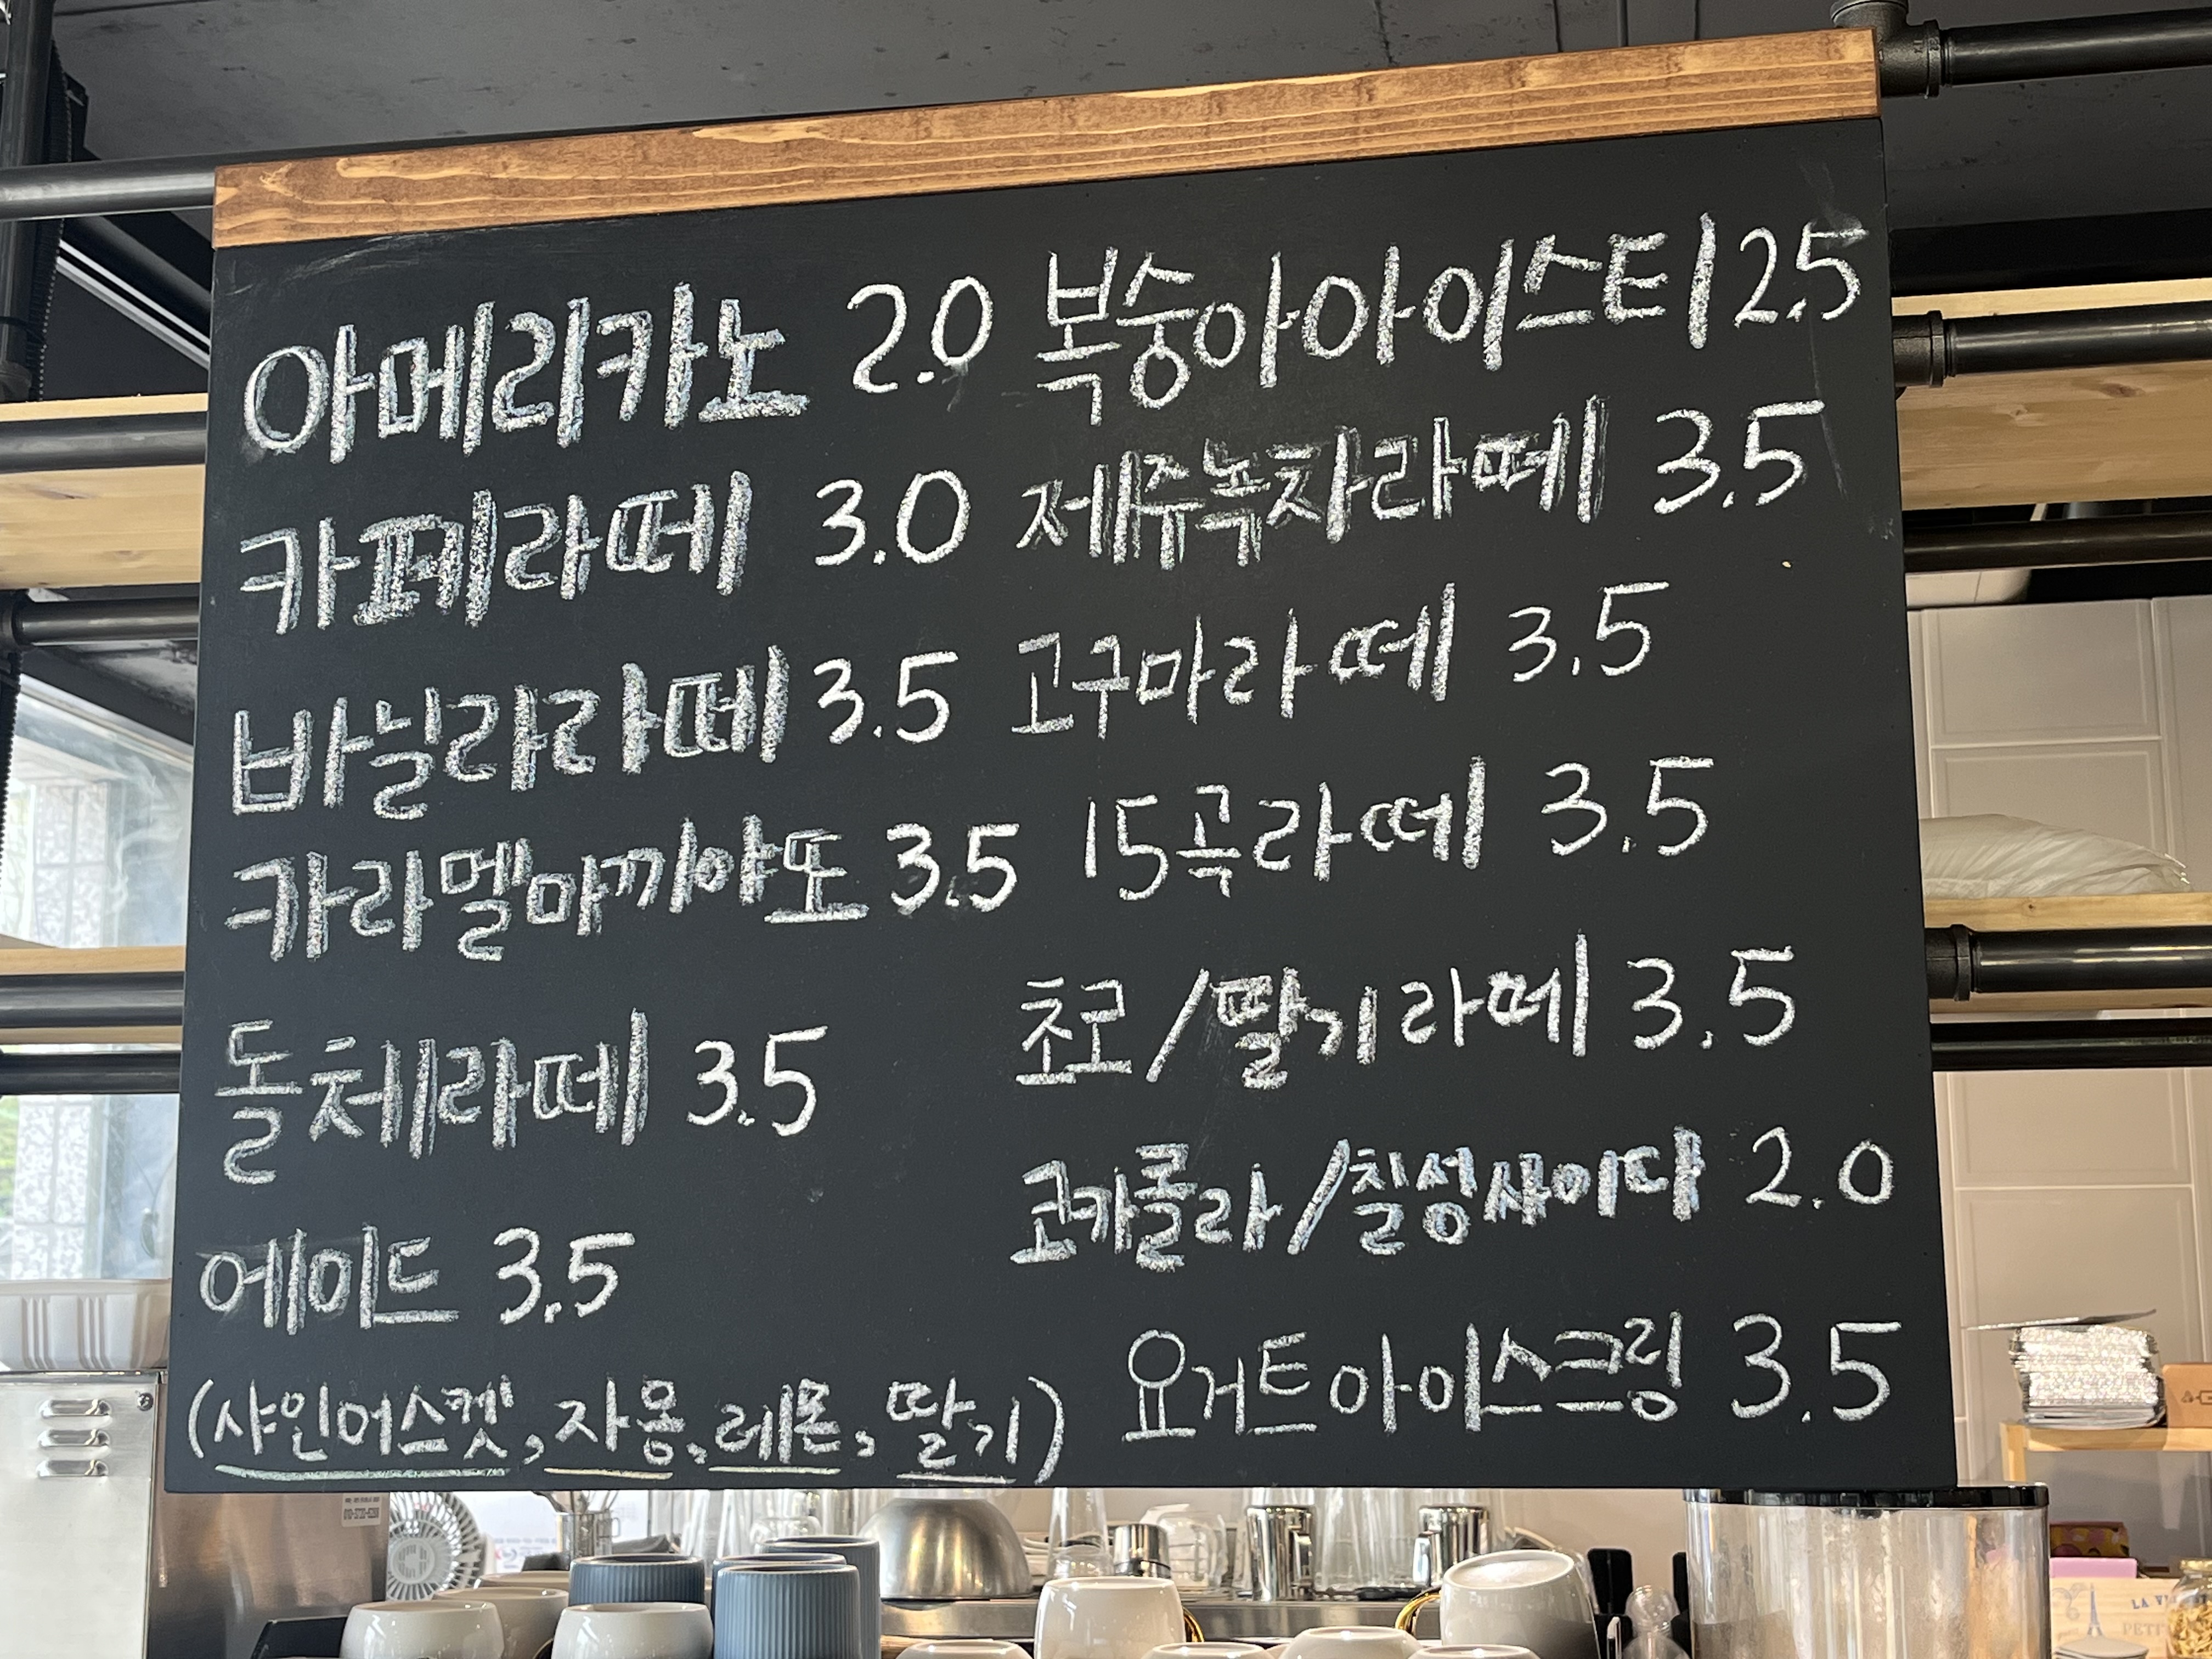 아메리카노 2.0
카페라떼 3.0
바닐라라떼 3.5
카라멜마끼야또 3.5
돌체라떼 3.5
에이드 3.5
(샤인머스켓, 자몽, 레몬, 딸기)
복숭아아이스티 2.5
제주녹차라떼 3.5
고구마라떼 3.5
15곡라떼 3.5
초코/딸기라떼 3.5
코카콜라/칠성사이다 2.0
요거트아이스크림 3.5